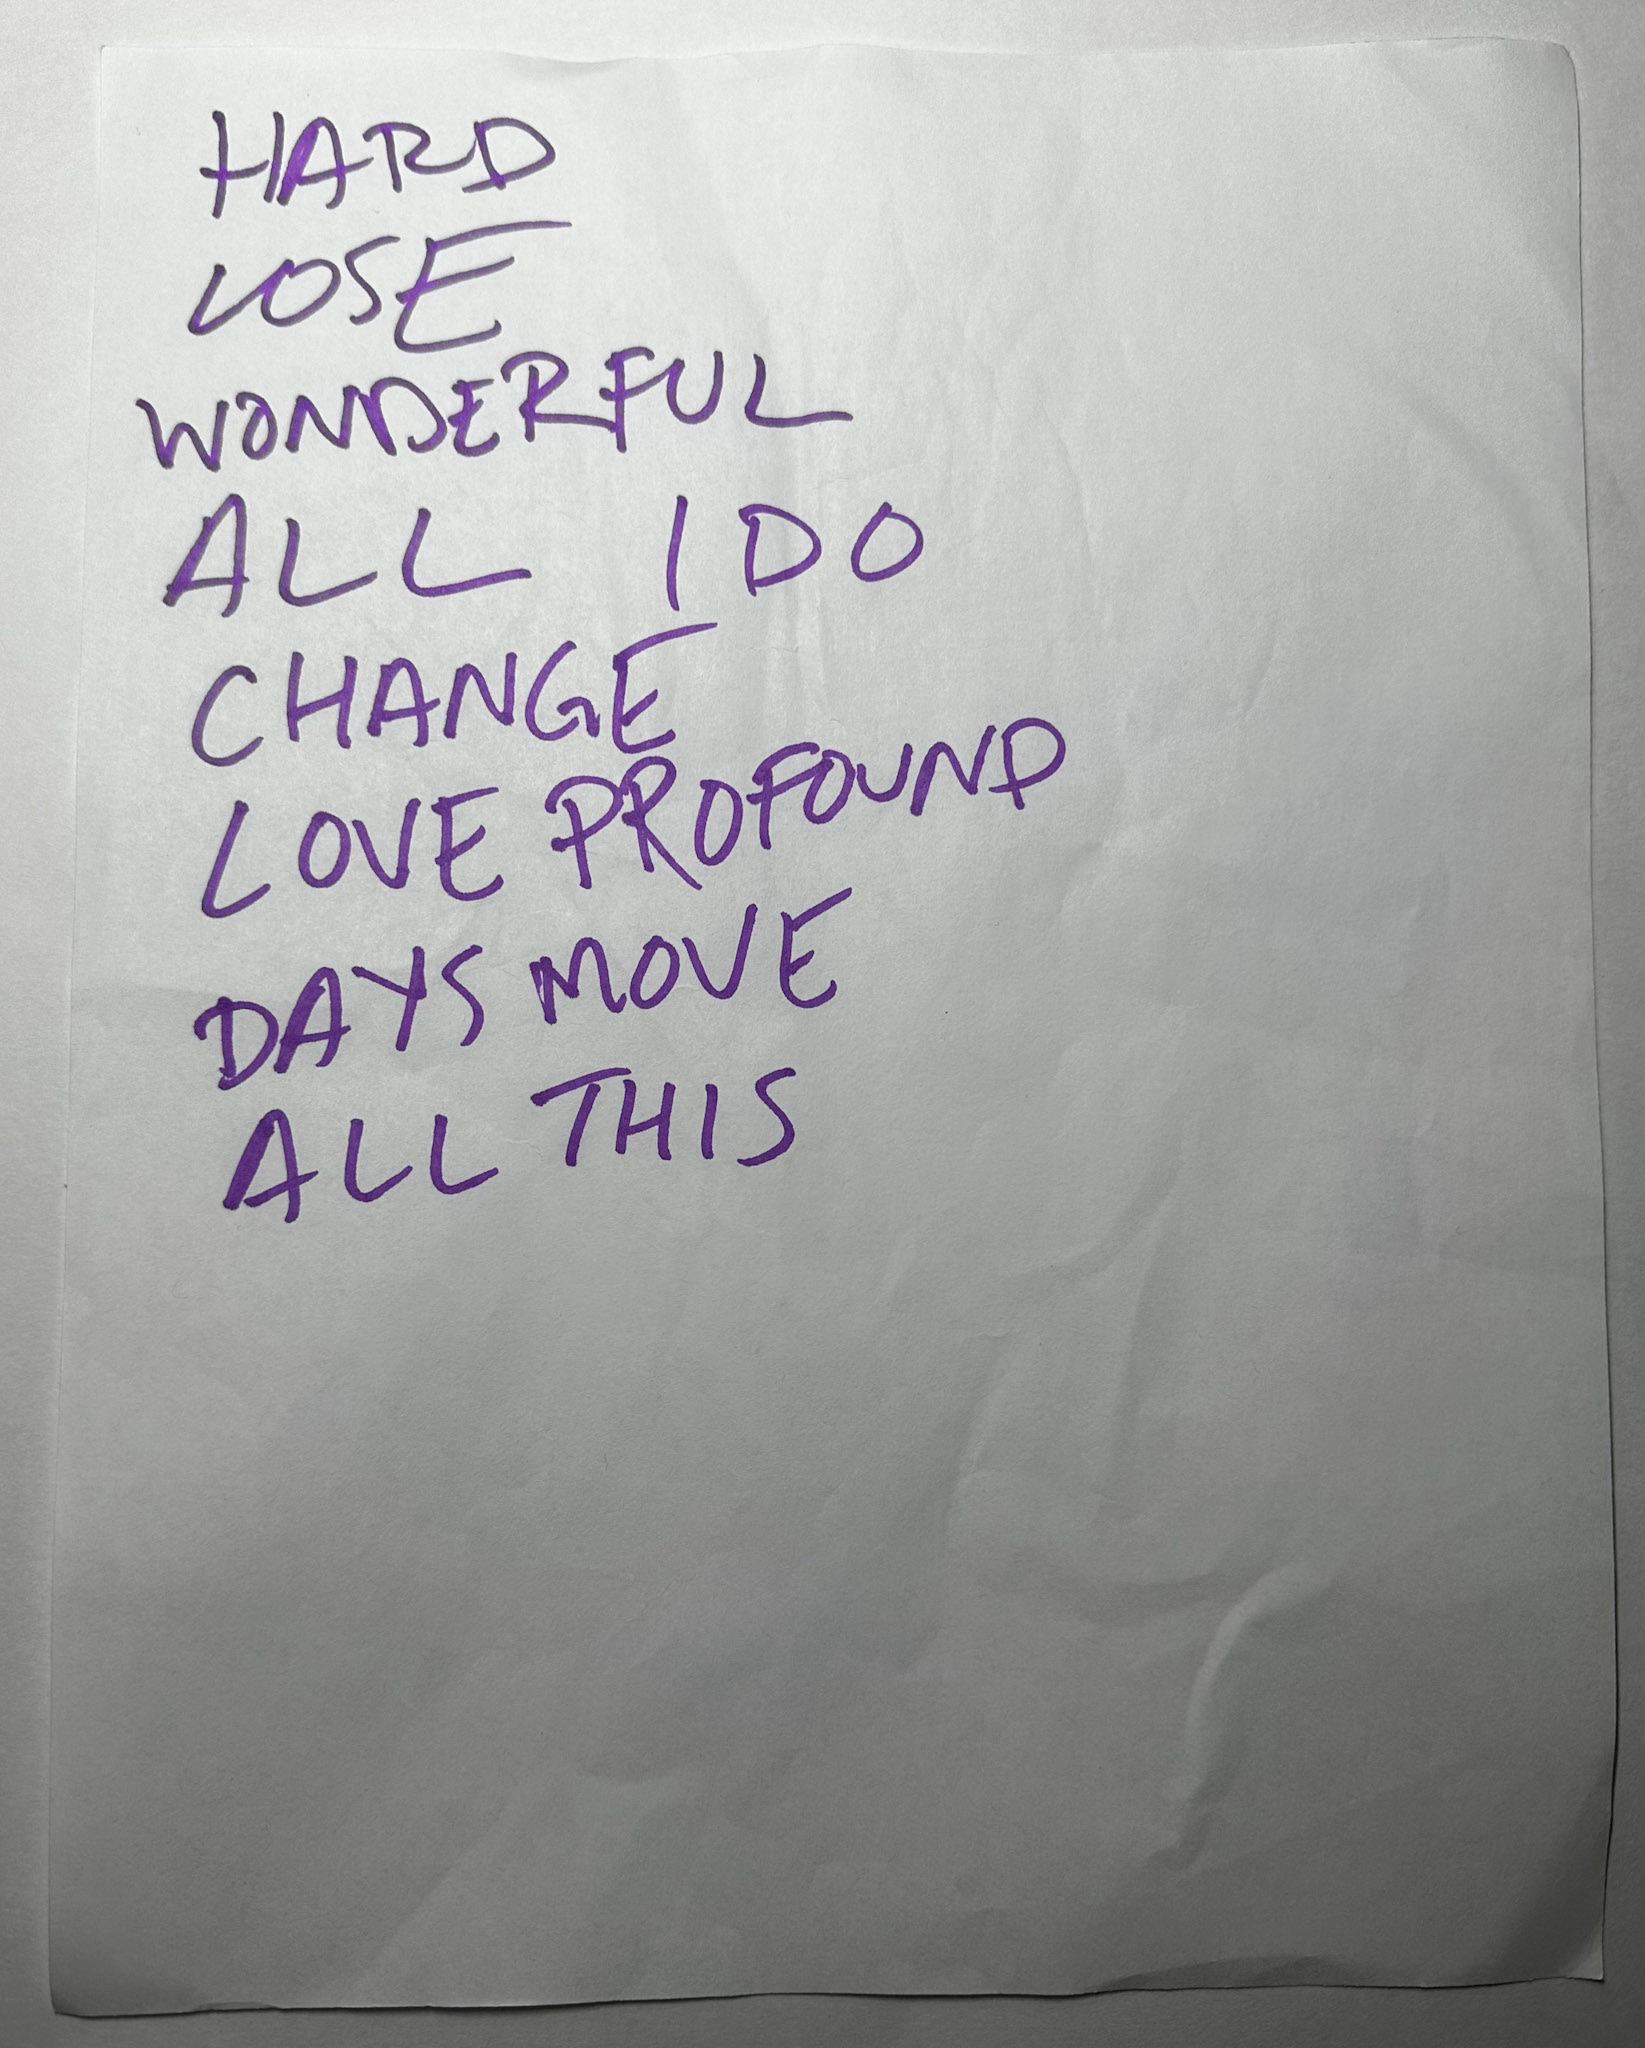 HARD
LOSE
WONDERFUL
ALL I DO
CHANGE
LOVE PROFOUND
DAYS MOVE
ALL THIS